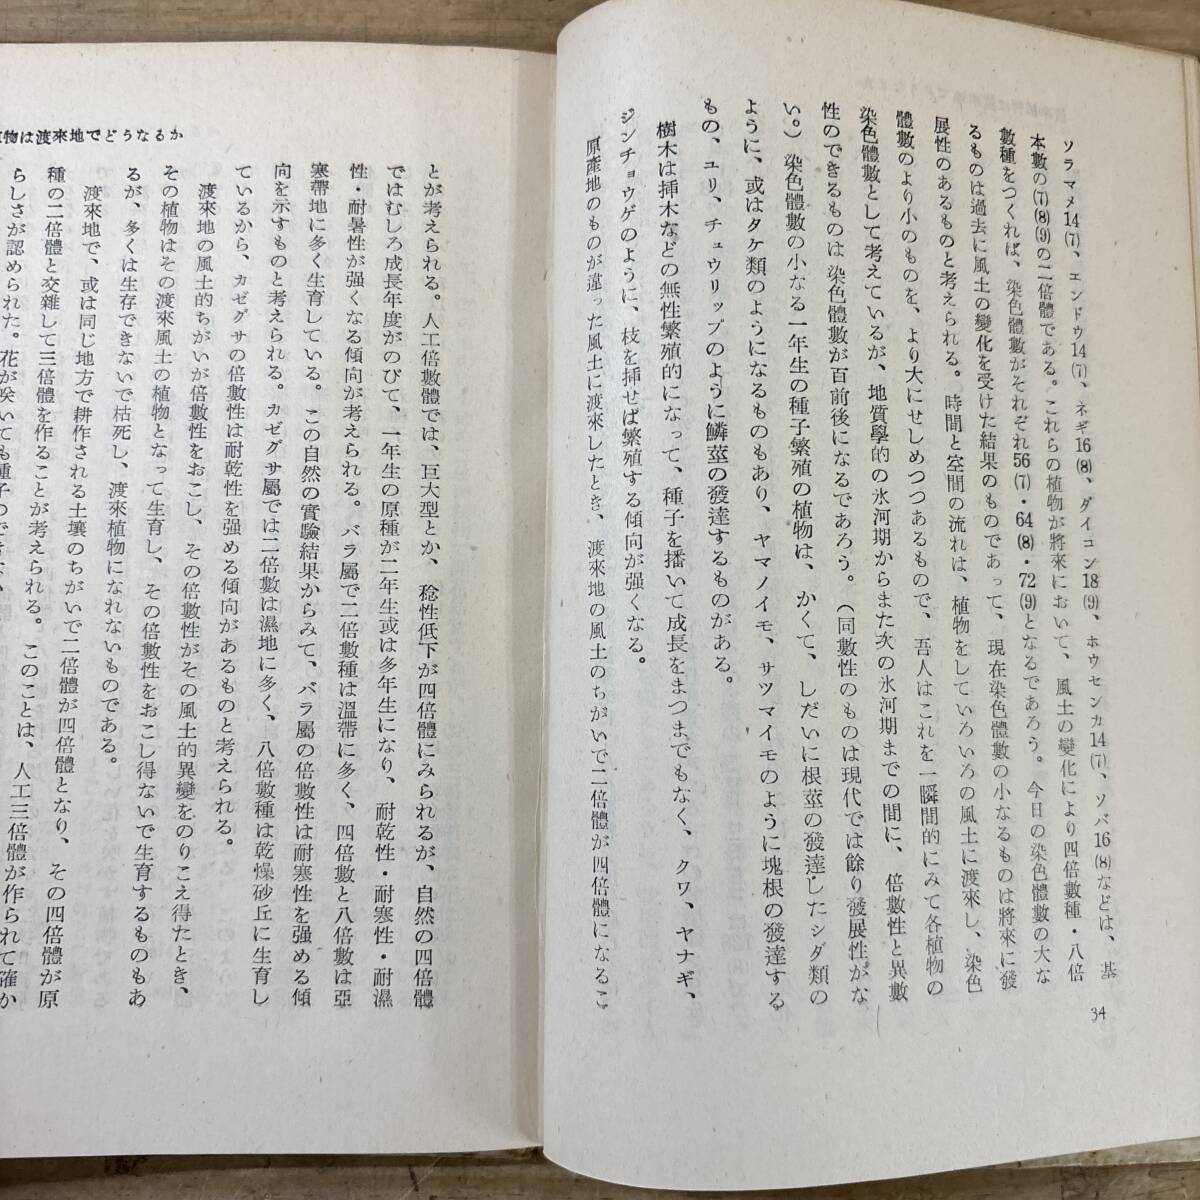 ソラマメ14(7)、エンドウ14(7)、ネギ16(8)、ダイコン18(9)、ホウセンカ14(7)、ソバ16(8)などは、基
本數の(7)(8)(9)の二倍體である。これらの植物が將來において、風土の變化により四倍數種・八倍
數種をつくれば、染色體數がそれぞれ56(7)・64(8)・72(9)となるであろう。今日の染色體數の大な
るものは過去に風土の變化を受けた結果のものであって、現在染色體數の小なるものは將來に發
展性のあるものと考えられる。時間と空間の流れは、植物をしていろいろの風土に渡來し、染色
體數のより小のものを、より大にせしめつつあるもので、吾人はこれを一瞬間的にみて各植物の
染色體數として考えているが、地質學的の氷河期からまた次の氷河期までの間に、倍數性と異數
性のできるものは染色體數が百前後になるであろう。(同數性のものは現代では餘り發展性がな
い。)染色體數の小なる一年生の種子繁殖の植物は、かくて、しだいに根莖の發達したシダ類の
ように、或はタケ類のようになるものもあり、ヤマノイモ、サツマイモのように塊根の發達する
もの、ユリ、チュウリップのように鱗莖の發達するものがある。
樹木は揷木などの無性繁殖的になって、種子を播いて成長をまつまでもなく、クワ、ヤナギ、
ジンチョウゲのように、枝を揷せば繁殖する傾向が强くなる。
原產地のものが違った風土に渡來したとき、渡來地の風土のちがいで二倍體が四倍體になるこ
34
物は渡來地でどうなるか
とが考えられる。人工倍數體では、巨大型とか、稔性低下が四倍體にみられるが、自然の四倍體
ではむしろ成長年度がのびて、一年生の原種が二年生或は多年生になり、耐乾性・耐寒性・耐濕
性・耐暑性が强くなる傾向が考えられる。バラ屬で二倍數種は溫帶に多く、四倍數と八倍數は亞
寒帶地に多く生育している。この自然の實驗結果からみて、バラ屬の倍數性は耐寒性を强める傾
向を示すものと考えられる。カゼグサ屬では二倍數は濕地に多く、八倍數種は乾燥砂丘に生育し
ているから、カゼグサの倍數性は耐乾性を强める傾向があるものと考えられる。
渡來地の風土的ちがいが倍數性をおこし、その倍數性がその風土的異變をのりこえ得たとき、
その植物はその渡來風土の植物となって生育し、その倍數性をおこし得ないで生育するものもあ
るが、多くは生存できないで枯死し、渡來植物になれないものである。
渡來地で、或は同じ地方で耕作される土壤のちがいで二倍體が四倍體となり、その四倍體が原
種の二倍體と交雜して三倍體を作ることが考えられる。このことは、人工三倍體が作られて確か
らしさが認められた。花が咲いても種子のできな